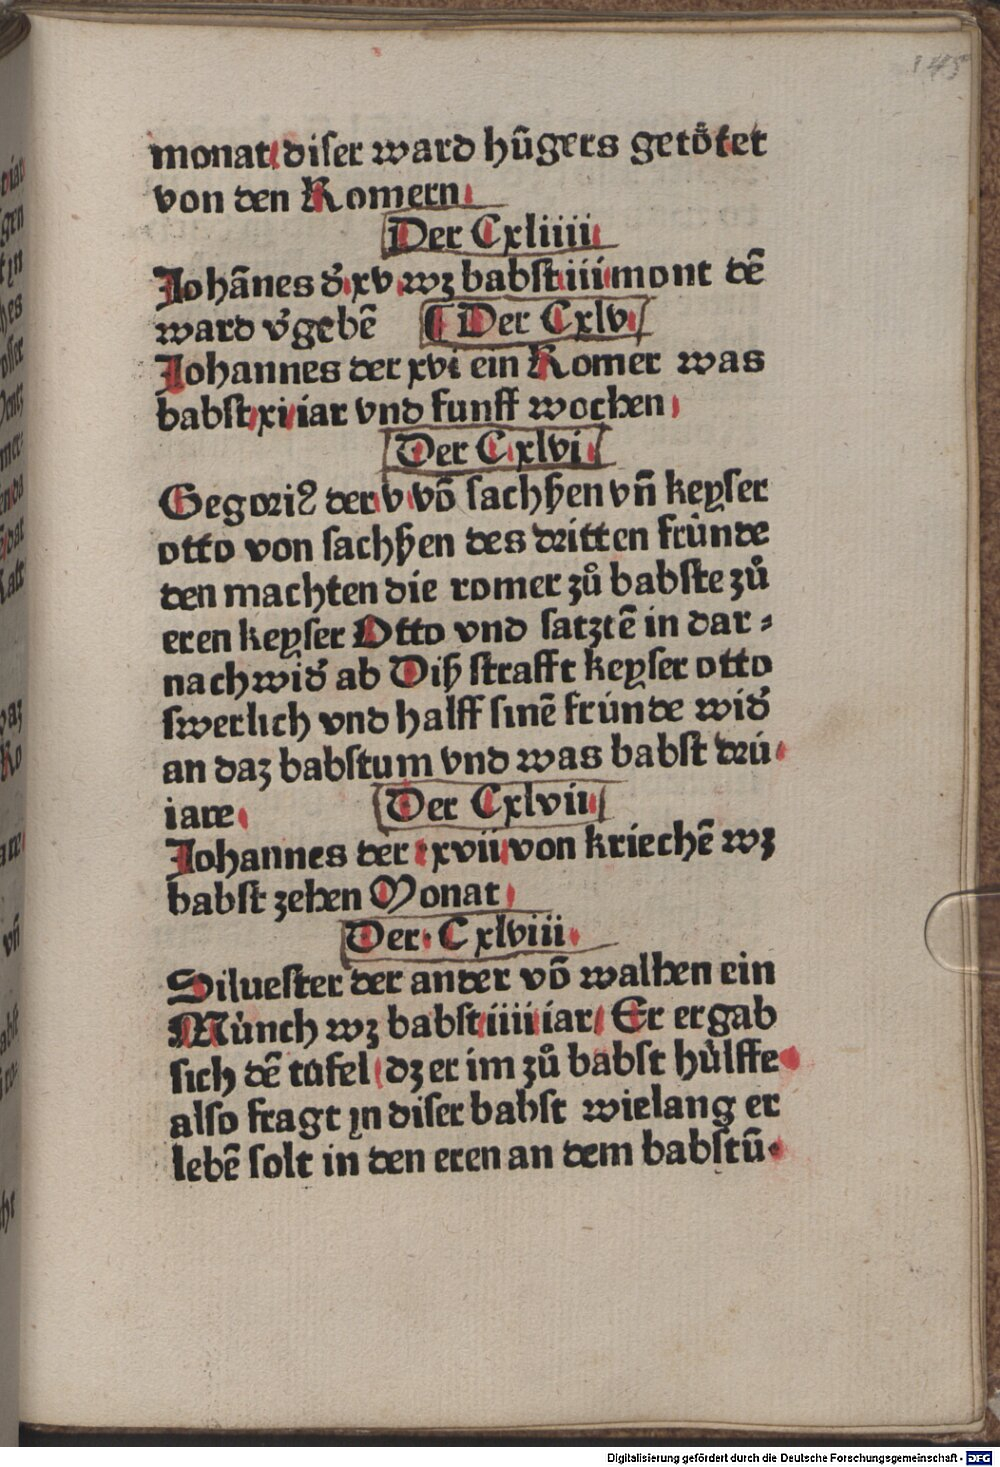 145
monat diser ward hũgers getoͤtet
von den Romern
Der Cxliiii
Johãnes dˢ xv wz babst iii mont dẽ
ward vˢgebẽ ¶ Der Cxlv
Johannes der xvi ein Romer was
babst xi iar vnd funff wochen
Der Cxlvi
Gegoriꝰ der v võ sachßen vñ keyser
otto von sachßen des dritten fruͤnde
den machten die romer zuͦ babste zuͦ
eren keyser Otto vnd satztẽ in dar⸗
nach widˢ ab Diß strafft keyser otto
swerlich vnd halff sinẽ frúnde widˢ
an daz babstum vnd was babst drú
iare Der Cxlvii
Johannes der xvii von kriechẽ wz
babst zehen Monat
Der Cxlviii
Siluester der ander võ walhen ein
Muͤnch wz babst iiii iar Er ergab
sich dẽ tüfel dz er im zuͦ babst huͤlffe
also fragt yn diser babst wielang er
lebẽ solt in den eren an dem babstũ
Digitalisierung gefördert durch die Deutsche Forschungsgemeinschaft - DFG